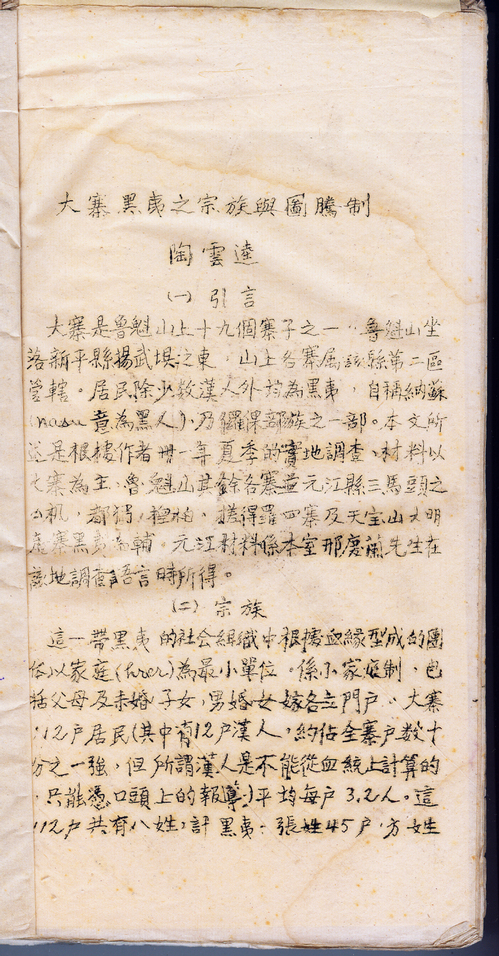 大寨黑夷之宗族與圖騰制
陶雲逵
(一) 引言
大寨是魯魁山上十九個寨子之一。魯魁山坐
落新平縣揚武垻之東，山上各寨屬該縣第二區
管轄。居民除少數漢人外均為黑夷，自稱納蘇
(nasu 意為黑人)乃儸倮部族之一部。本文所
述是根據作者卅一年夏季的實地調查，材料以
大寨為主，魯魁山其餘各寨並元江縣三馬頭之
為輔。元江材料係本室邢慶蘭先生在
該地調查語言時所得。
(二) 宗族
這一帶黑夷的社會組織中根據血緣型成的團
俗以家庭()為最小單位。係小家庭制，包
括父母及未婚子女，男婚女嫁各立門戶。大寨
112戶居民(其中有12戶漢人，約佔全寨戶数十
分之一強，但所謂漢人是不能從血統上計算的
，只能憑口頭上的報導)平均每戶3.2人。這
112戶共有八姓，計黑夷：張姓45戶，方姓